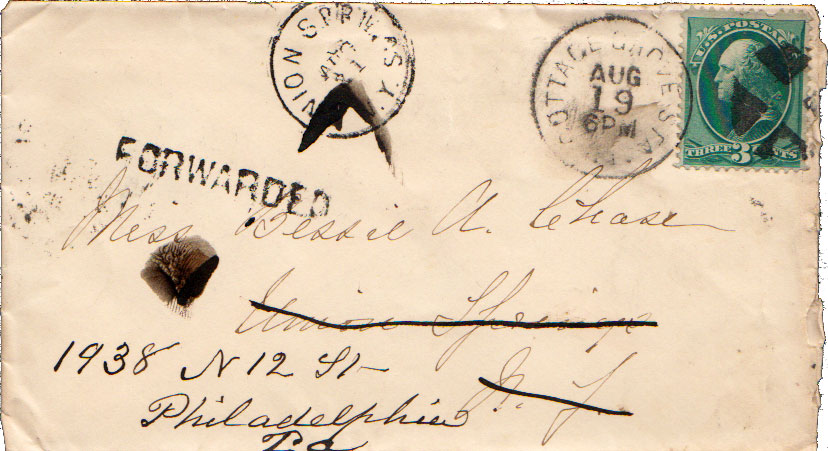 UNION SPRINGS N.Y.
AUG
21
COTTAGE GROVE STA.
AUG
19
6PM
U.S. POSTAGE
THREE 3 CENTS
FORWARDED
Miss Bessie A. Chase
Union Springs
N. Y.
1938 N 12 St
Philadelphia
Pa